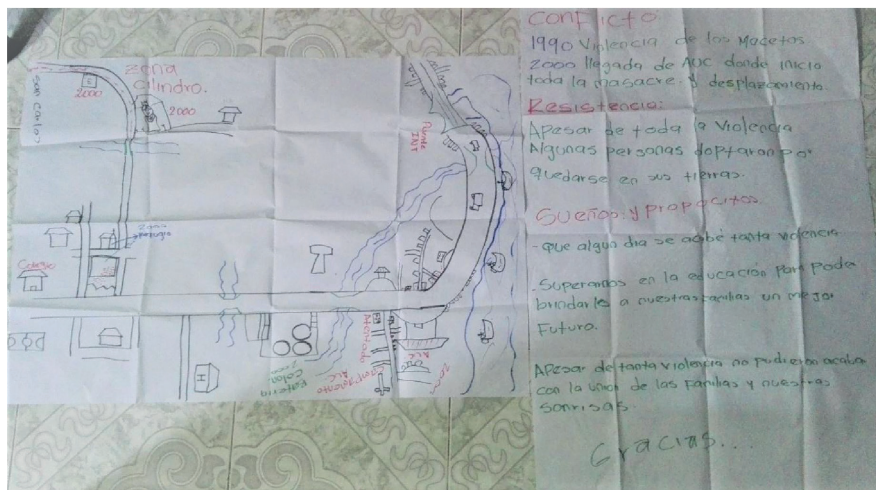 San Carlos
2000
Zona
cilindro.
2000
2000
Colegio
Puente
H
AUC
Conflicto
1990 Violencia de los Macetos.
2000 llegada de AUC donde inicio
toda la masacre y desplazamiento.
Resistencia:
Apesar de toda la violencia
Algunas personas doptaron por
quedarse en sus tierras.
Sueños y propocitos
- que algun dia se acabe tanta violencia
- Superarnos en la educación para poder
brindarles a nuestras familias un mejor
Futuro.
Apesar de tanta violencia no pudieron acabar
con la union de las familias y nuestras
sonrisas.
Gracias...